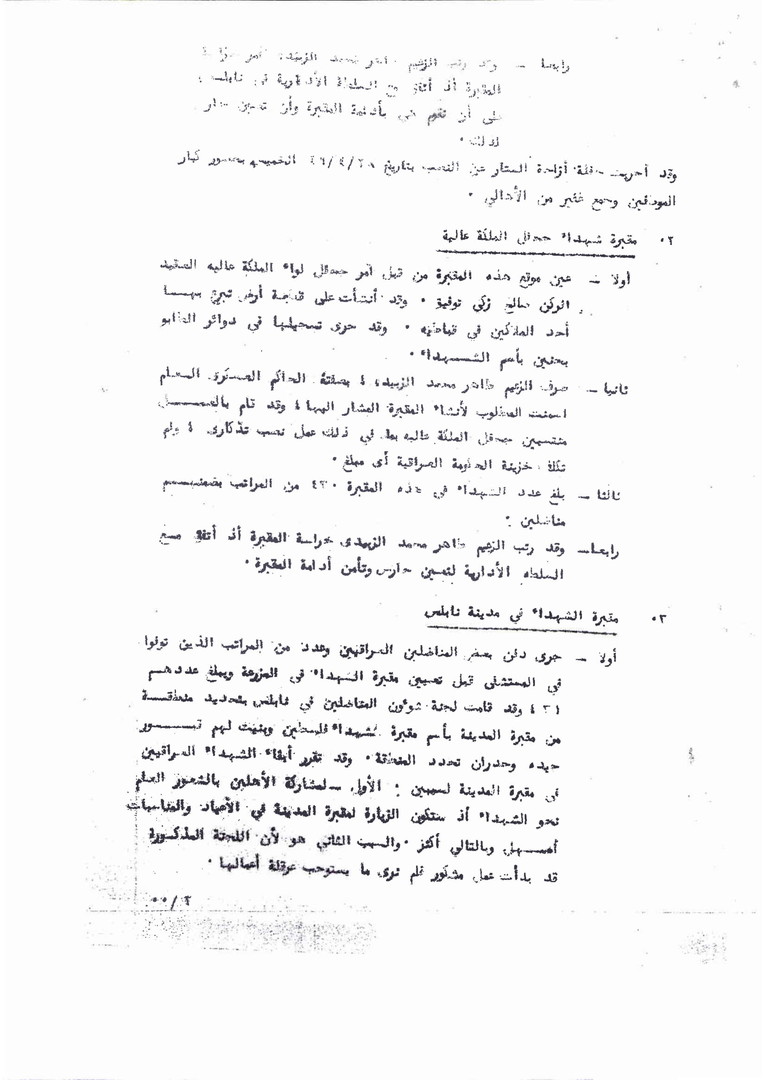 رابعا - وقد رتب الزعيم طاهر محمد الزبيدى أمر حراسة
المقبرة أذ أتفق مع السلطة الأدارية في نابلس
على أن تقوم هي بأدامة المقبرة وأن تعيين حارس
لذلك .
وقد أجريت حفلة أزاحة الستار عن النصب بتاريخ الخميس بحضور كبار
الموظفين وجمع غفير من الأهالي .
٢. مقبرة شهداء جحفل الملكة عالية
أولا - عين موقع هذه المقبرة من قبل آمر جحفل لواء الملكة عاليه العقيد
الركن صالح زكي توفيق . وقد أنشأت على قطعة أرض تبرع بهــا
أحد الملاكين في قباطيه . وقد جرى تسجيلها في دوائر الطابو
بجنين بأسم الشهداء .
ثانيا - صرف الزعيم طاهر محمد الزبيدى ، بصفته الحاكم العسكرى العـام
اسمنت المطلوب لأنشاء المقبرة المشار اليها ، وقد قام بالعمــل
منتسبين جحفل الملكة عاليه بما في ذلك عمل نصب تذكارى ، ولم
تكلف خزينة الحكومة العراقية أى مبلغ .
ثالثا - بلغ عدد الشهداء في هذه المقبرة من المراتب بضمنهــم
مناضلين :
رابعا- وقد رتب الزعيم طاهر محمد الزبيدى حراسة المقبرة أذ أتفق مــع
السلطه الأدارية لتعيين حارس وتأمن أدامة المقبرة .
٣. مقبرة الشهداء في مدينة نابلس
أولا - جرى دفن بعض المناضلين العراقيين وعدد من المراتب الذين توفوا
في المستشفى قبل تعيين مقبرة الشهداء في المزرعة ويبلغ عددهــم
وقد قامت لجنة شوؤن المناضلين في نابلس بتحديد منطقــة
من مقبرة المدينة بأسم مقبرة شهداء فلسطين وبنيت لهم قبــور
جيده وجدران تحدد المنطقة . وقد تقرر أبقاء الشهداء العراقيين
في مقبرة المدينة لسببين : الأول - لمشاركة الأهلين بالشعور العام
نحو الشهداء أذ ستكون الزيارة لمقبرة المدينة في الأعياد والمناسبات
أسهــل وبالتالي أكثر . والسبب الثاني هو لأن اللجنة المذكــورة
قد بدأت عمل مشكور فلم نرى ما يستوجب عرقلة أعمالها .
٠٠/٣